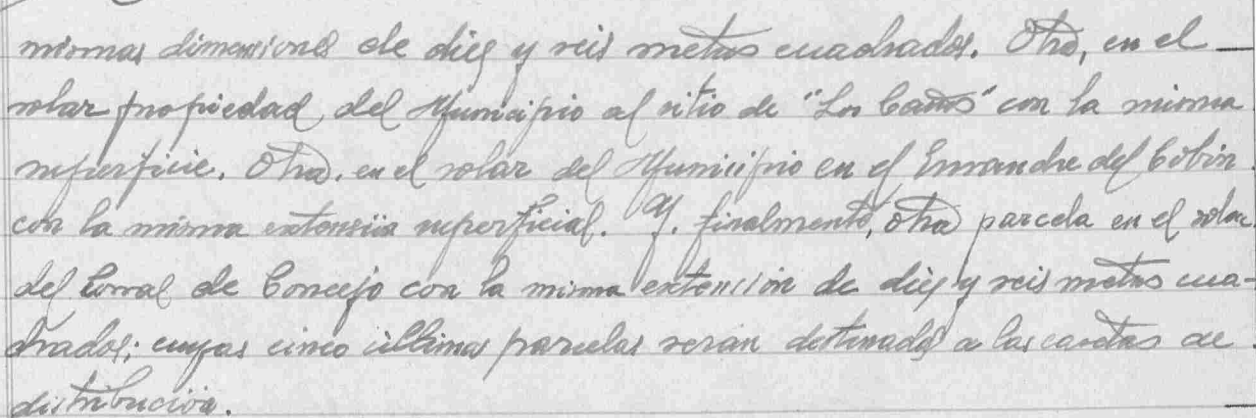 mismas dimensiones de diez y seis metros cuadrados. Otra, en el
solar propiedad del Municipio al sitio de "Los Caños" con la misma
superficie. Otra. en el solar del Municipio en el Ensanche del
con la misma extensión superficial. Y. finalmente, otra parcela en el solar
del Corral de Concejo con la misma extensión de diez y seis metros cua-
drados; cuyas cinco últimas parcelas seran destinadas a las casetas de
distribución.